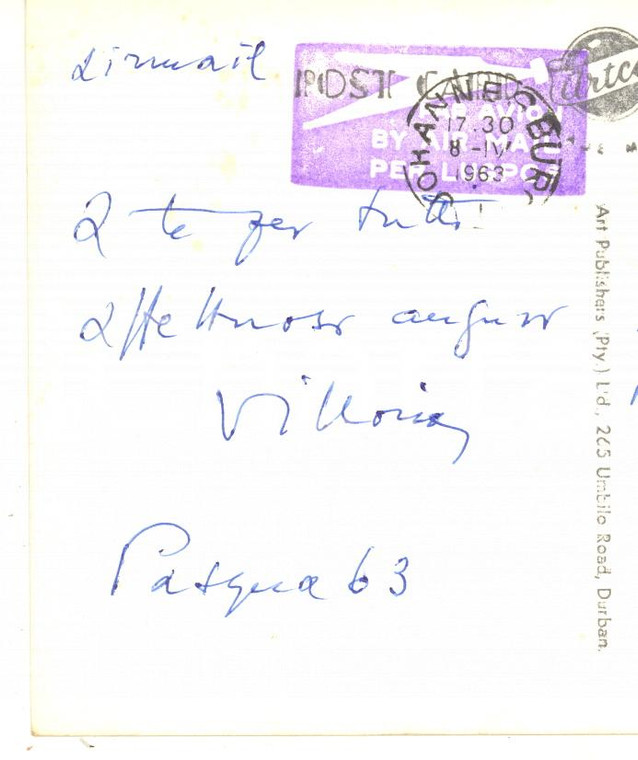 airmail
POST CARD
PAR AVION
BY AIR MAIL
PER LUGPOS
JOHANNESBURG
17.30
8-IV
1963
A te e per tutti
affettuosi auguri
Vittorio
Pasqua 63
Art Publishers (Pty.) Ltd., 265 Umbilo Road, Durban.